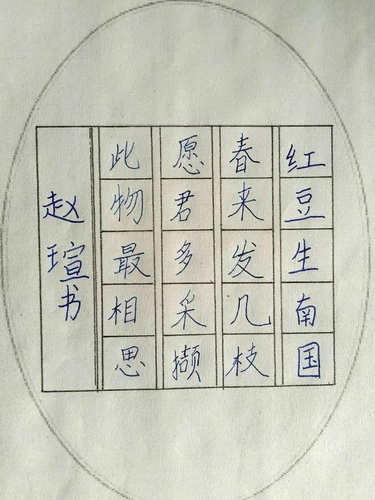 红豆生南国
春来发几枝
愿君多采撷
此物最相思
赵瑄书